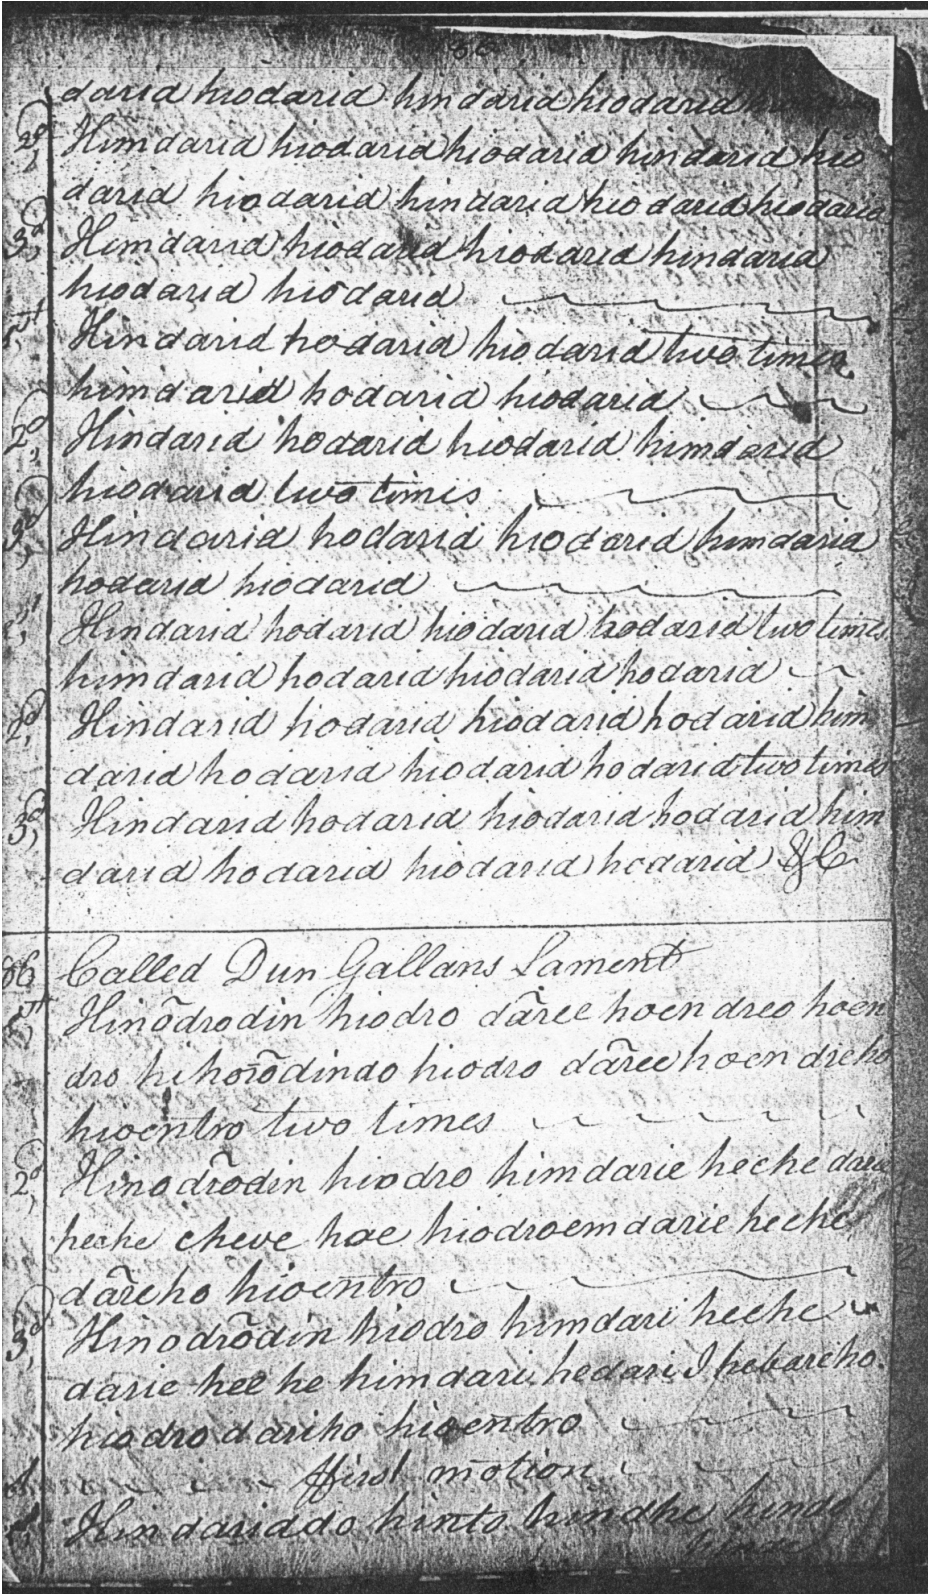 daria hiodarid hindarid hiodarid
2d, Himdarid hiodarid hiodarid hindarid hio
darid hiodarid hindarid hiodarid hiodarid
3d, Himdarid hiodarid hiodarid hindarid
hiodarid hiodarid
Hindarid hodarid hiodarid two times
himdarid hodarid hiodarid
2d, Hindarid hodarid hiodarid himdarid
hiodarid two times
3d, Hindarid hodarid hiodarid himdarid
hodarid hiodarid
Hindarid hodarid hiodarid hodarid two times
himdarid hodarid hiodarid hodarid
2d, Hindarid hodarid hiodarid hodarid him
darid hodarid hiodarid hodarid two times
3d, Hindarid hodarid hiodarid hodarid him
darid hodarid hiodarid hodarid &C
Called Dun Gallans Lament
Hinõdrodin hiodro dãree hoendreo hoen
dro hihorõdindo hiodro dãree hoendreho
hioentro two times
2d, Hinodrõdin hiodro himdarie heche darie
heche cheve hae hiodroemdarie heche
dãreho hioentro
3d, Hinodrõdin hiodro himdari heche
darie hee he himdari hedari I hebareho
hiodro dariho hioentro
ffirst motion
Hindariddo hinto hindhe hindo